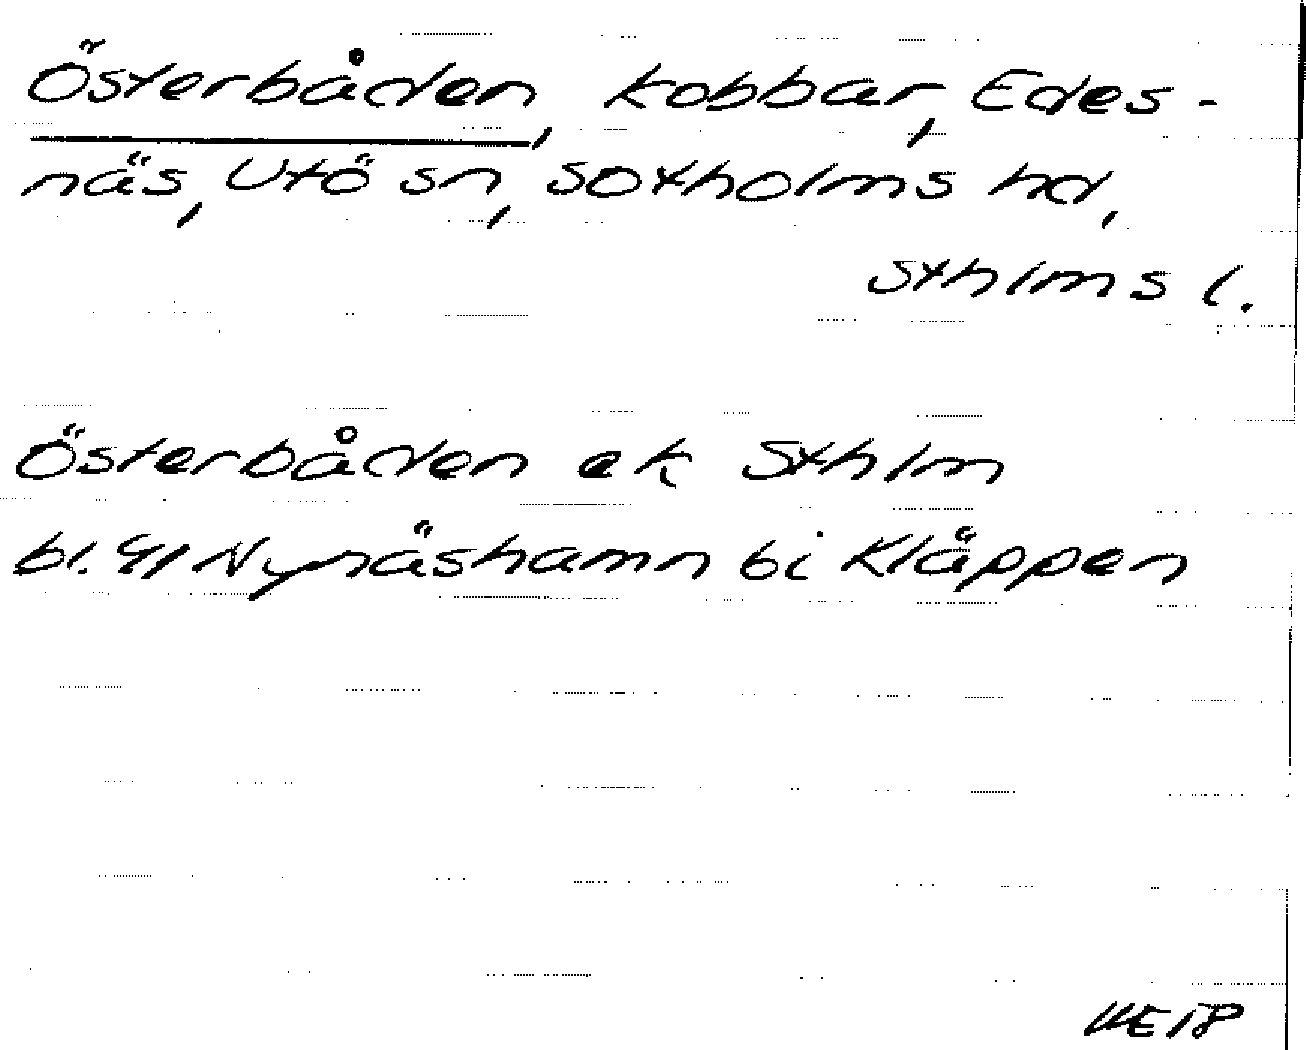 Österbåden, kobbar, Edes-
näs, Utö sn, Sotholms hd,
Sthlms l.
Österbåden ek Sthlm
bl. 41 Nynäshamn bi Kläppen